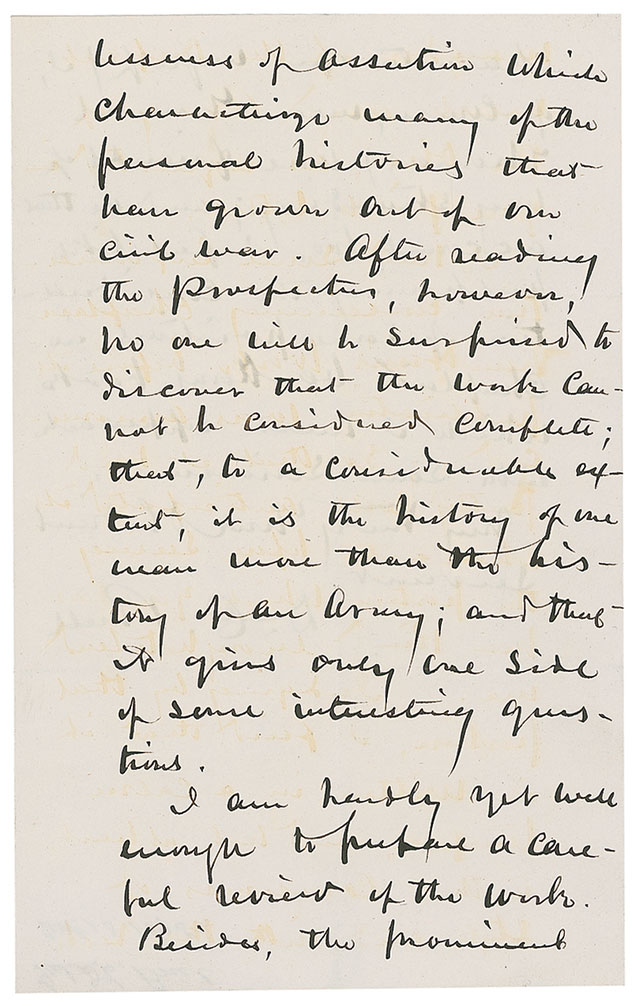 lessness of assertion which
characterize many of the
personal histories that
have grown out of our
civil war. After reading
the Prospectus, however,
no one will be surprised to
discover that the work can-
not be considered complete;
that, to a considerable ex-
tent, it is the history of one
man more than the his-
tory of an Army; and that
it gives only one side
of some interesting ques-
tions.
I am hardly yet well
enough to prepare a care-
ful review of the work.
Besides, the prominent